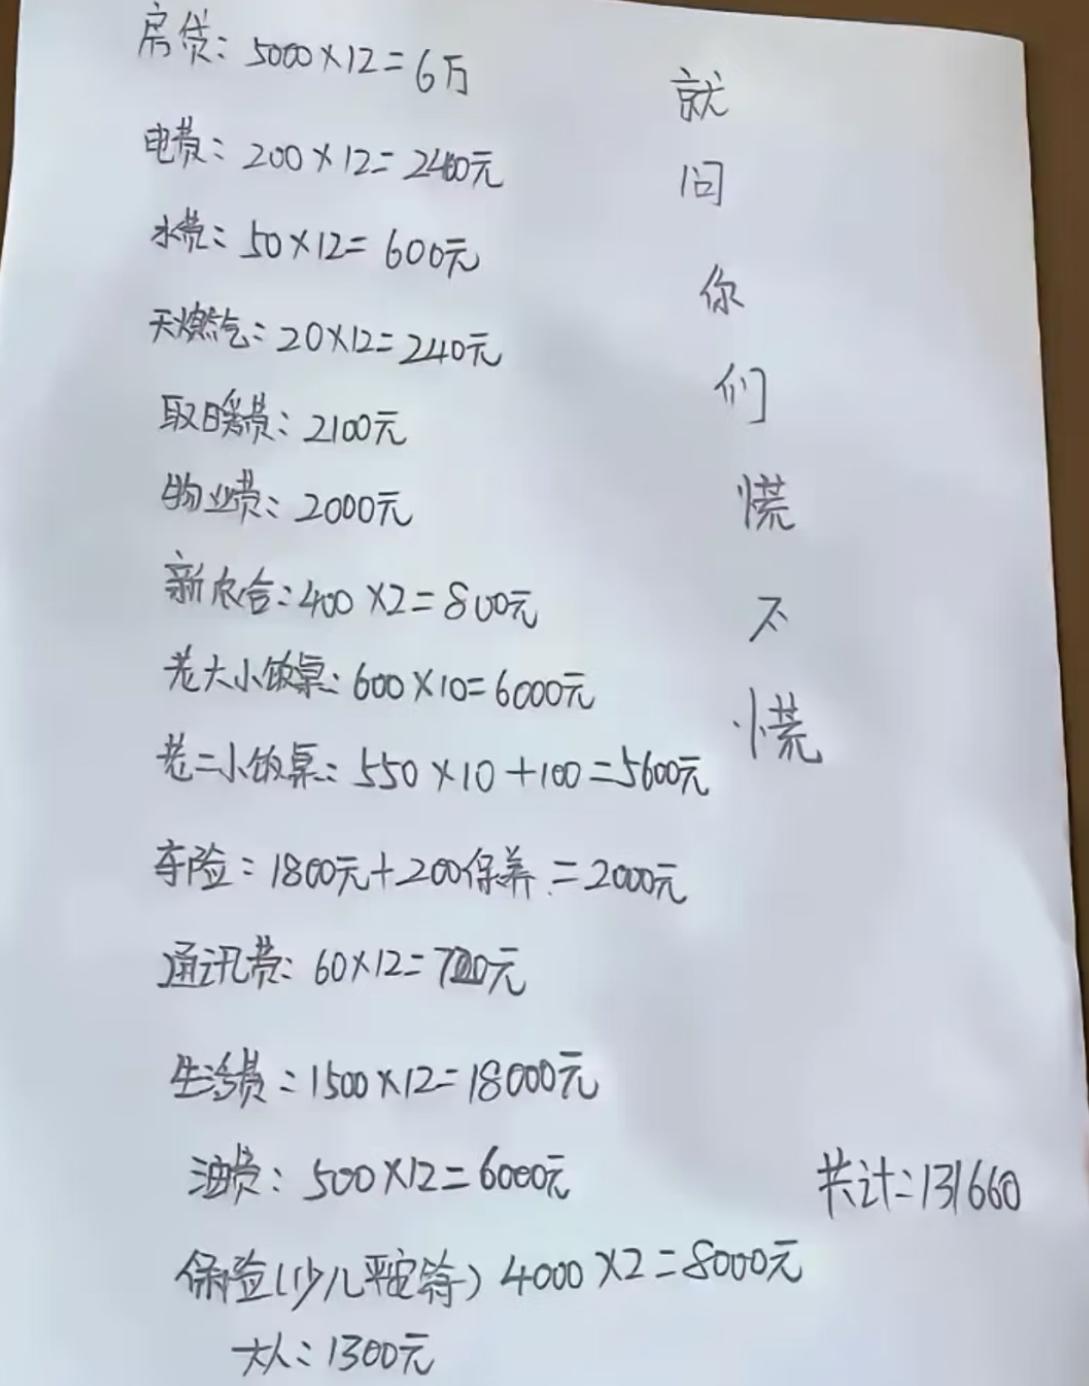 房贷：5000×12=6万
电费：200×12=2400元
水费：50×12=600元
天燃气：20×12=240元
取暖费：2100元
物业费：2000元
新农合：400×2=800元
老大小饭桌：600×10=6000元
老二小饭桌：550×10+100=5600元
车险：1800元+200保养=2000元
通讯费：60×12=720元
生活费：1500×12=18000元
油费：500×12=6000元
保险(少儿平安等) 4000×2=8000元
大人：1300元
就
问
你
们
慌
不
慌
共计：131660